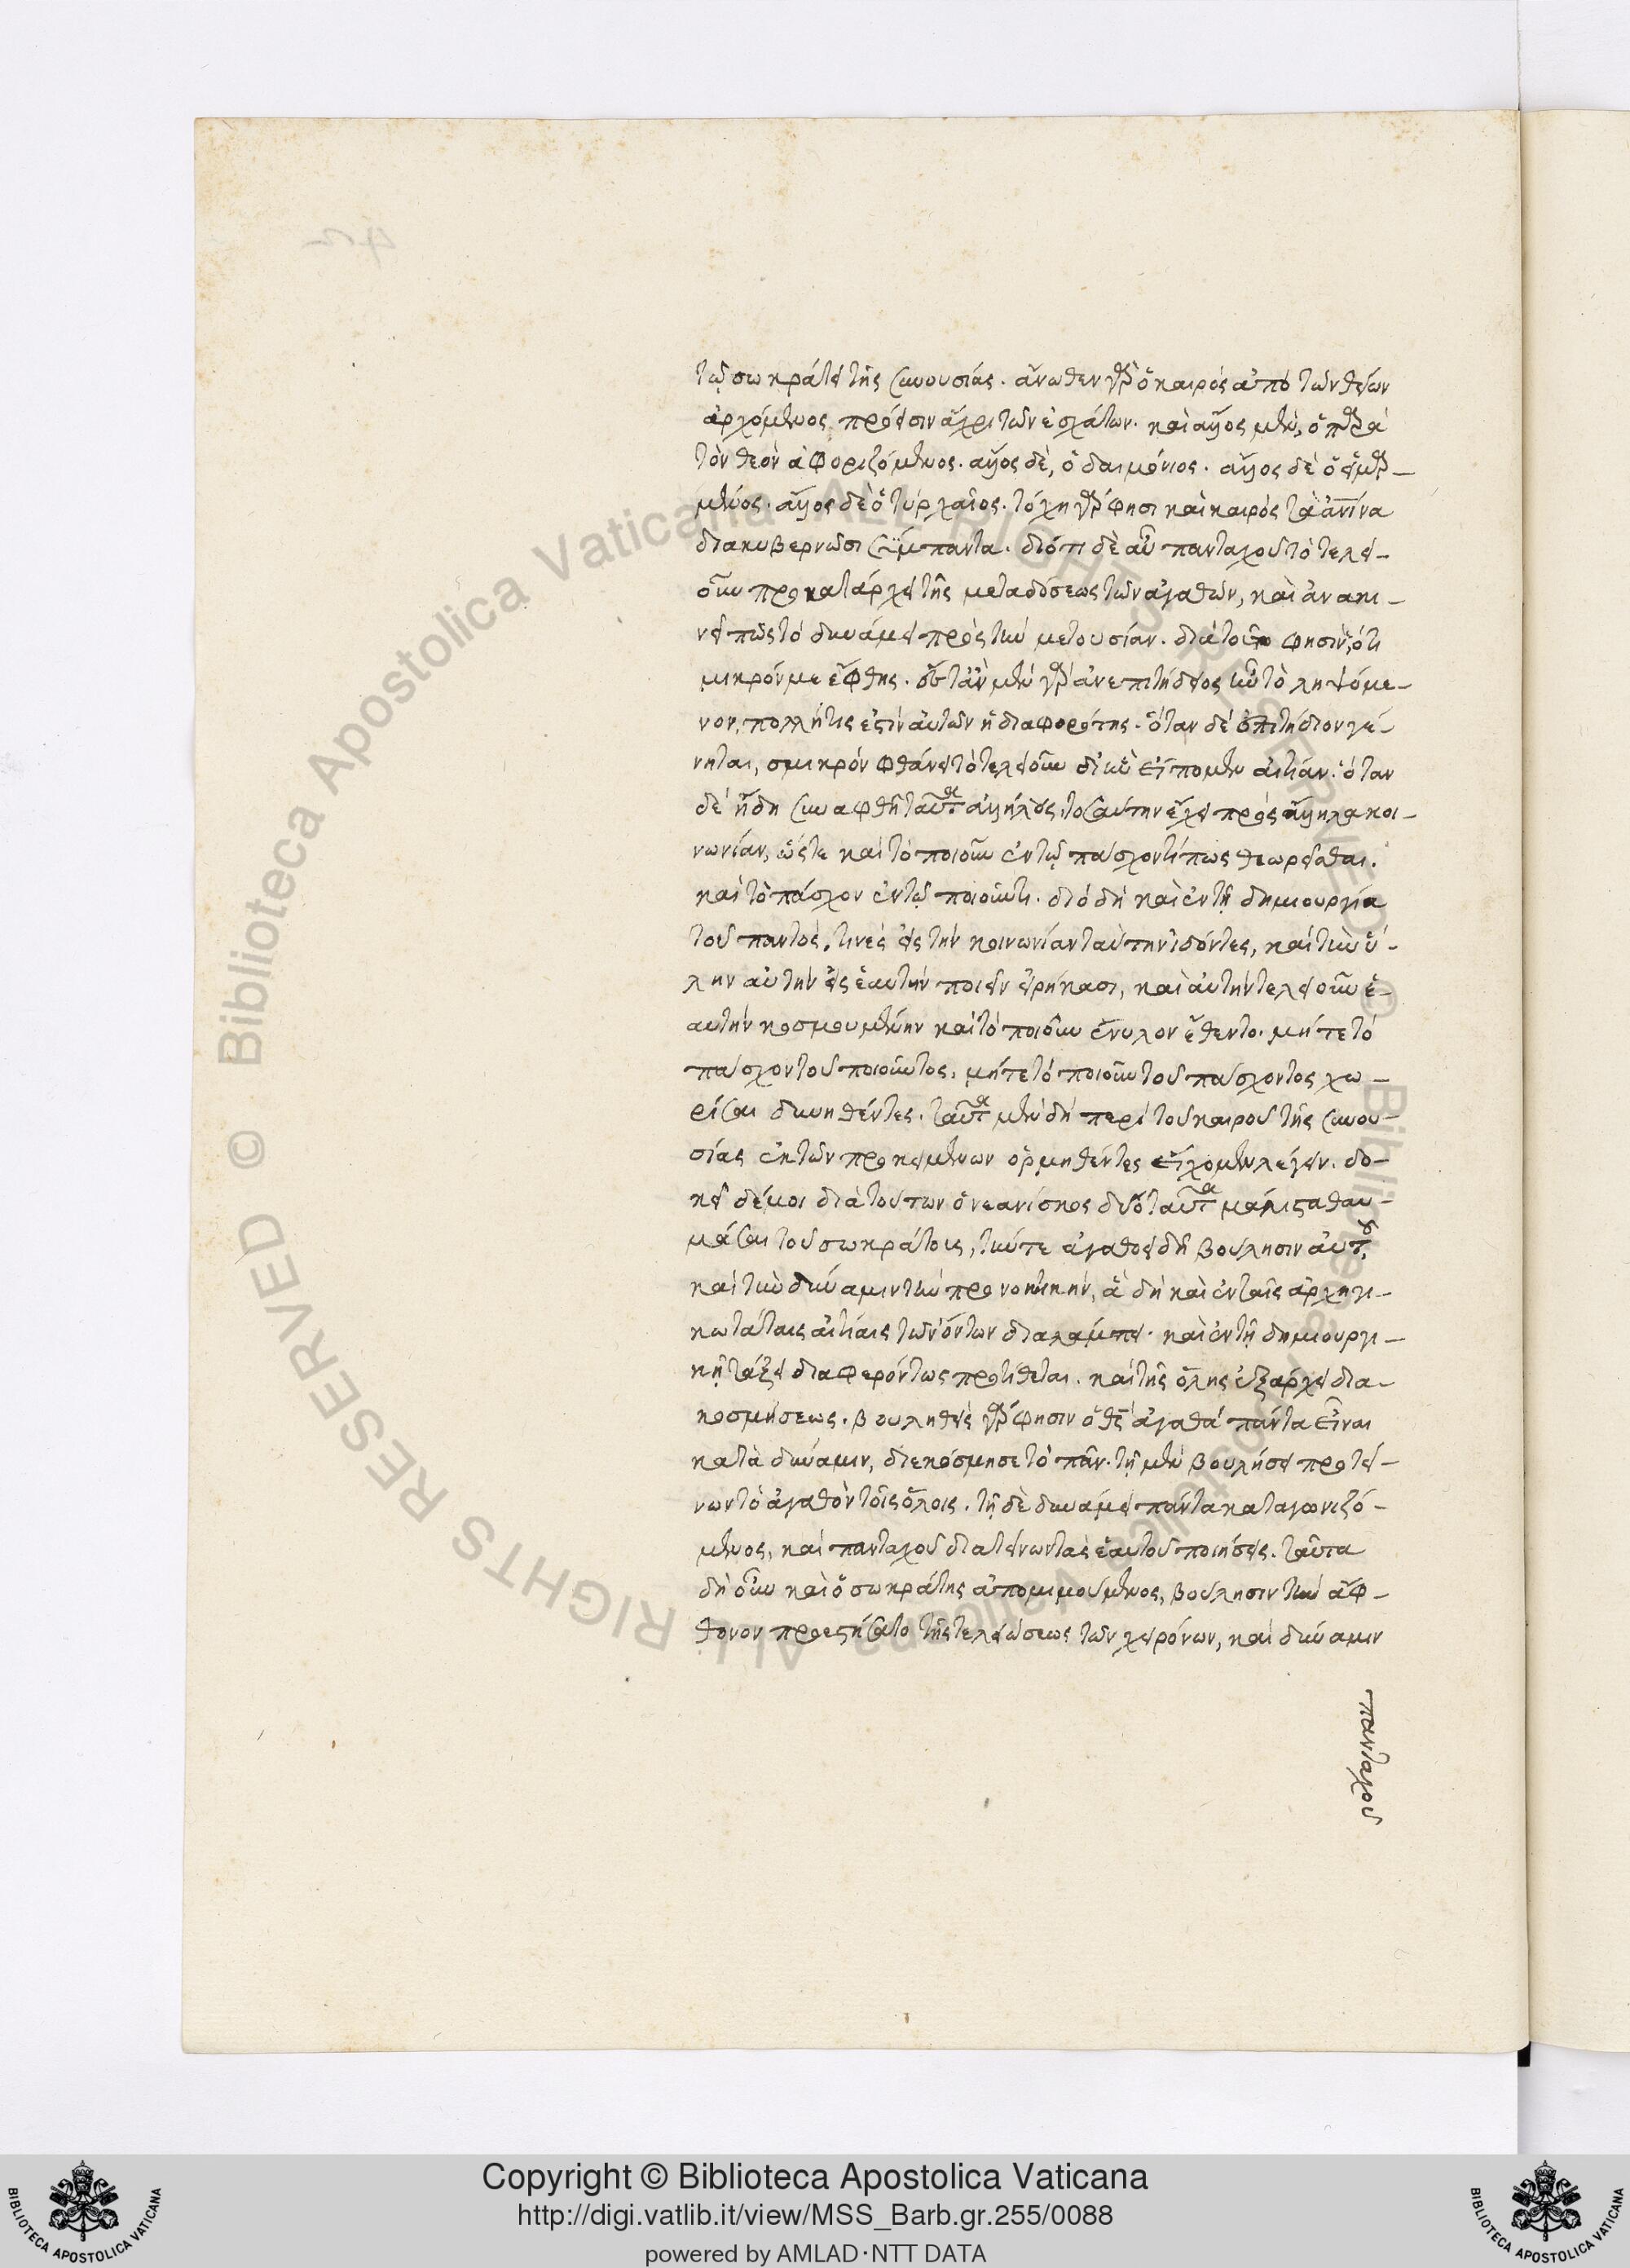 τῷ σωκράτει τῆς συνουσίας. ἄνωθεν γὰρ ὁ καιρὸς ἀπὸ τῶν θείων
ἀρχόμενος πρόεισιν ἄχρι τῶν ἐσχάτων. καὶ ἄλλος μὲν, ὁ παρὰ
τὸν θεὸν ἀφοριζόμενος. ἄλλος δὲ, ὁ δαιμόνιος. ἄλλος δὲ ὁ εἱμαρ-
μένος. ἄλλος δὲ ὁ τυχαῖος. τύχη γάρ φησι καὶ καιρὸς τὰ ἀνίνα
διακυβερνῶσι σύμπαντα. διότι δὲ αὖ πανταχοῦ τὸ τελει-
οῦν προκατάρχει τῆς μεταδόσεως τῶν ἀγαθῶν, καὶ ἀνακι-
νεῖ πῶς τὸ δυνάμει πρὸς τὴν μετουσίαν. διὰ τοῦτο φησὶν, ὅτι
μικρόν με ἔφθης. ὅταν μὲν γὰρ ἀνεπιτήδειος ᾖ τὸ ληψόμε-
νον, πολλή τις ἐστὶν αὐτῶν ἡ διαφορότης. ὅταν δὲ ἐπιτήδιον γέ-
νηται, σμικρὸν φθάνει τὸ τελειοῦν δι' ἣν εἴπομεν αἰτίαν. ὅταν
δὲ ἤδη συναφθῇ ταῦτα ἀλλήλοις, τοσαύτην ἔχει πρὸς ἄλληλα κοι-
νωνίαν, ὥστε καὶ τὸ ποιοῦν ἐν τῷ πάσχοντί πως θεωρεῖσθαι.
καὶ τὸ πάσχον ἐν τῷ ποιοῦντι. διὸ δὴ καὶ ἐν τῇ δημιουργίᾳ
τοῦ παντὸς, τινὲς εἰς τὴν κοινωνίαν ταύτην ἰδόντες, καὶ τὴν ὕ-
λην αὐτὴν εἰς ἑαυτὴν ποιεῖν εἰρήκασι, καὶ αὐτὴν τελειοῦν ἑ-
αυτὴν κοσμουμένην καὶ τὸ ποιοῦν ἔνυλον ἔθεντο. μήτε τὸ
πάσχον τοῦ ποιοῦντος, μήτε τὸ ποιοῦν τοῦ πάσχοντος χω-
ρίσαι δυνηθέντες. ταῦτα μὲν δὴ περὶ τοῦ καιροῦ τῆς συνου-
σίας ἐκ τῶν προκειμένων ὁρμηθέντες εἴχομεν λέγειν. δο-
κεῖ δέ μοι διὰ τούτων ὁ νεανίσκος δύο ταῦτα μάλιστα θαυ-
μάσαι τοῦ σωκράτους, τήν τε ἀγαθοειδῆ βούλησιν αὐτοῦ,
καὶ τὴν δύναμιν τὴν προνοητικήν, ἃ δὴ καὶ ἐν ταῖς ἀρχηγι-
κωτάταις αἰτίαις τῶν ὄντων διαλάμπει. καὶ ἐν τῇ δημιουργι-
κῇ τάξει διαφερόντως προτίθεται. καὶ τῆς ὅλης ἐξάρχει δια-
κοσμήσεως. βουληθεὶς γάρ φησιν ὁ θεὸς ἀγαθὰ πάντα εἶναι
κατὰ δύναμιν, διεκόσμησε τὸ πᾶν. τῇ μὲν βουλήσει προτεί-
νων τὸ ἀγαθὸν τοῖς ὅλοις. τῇ δὲ δυνάμει πάντα καταγωνιζό-
μενος, καὶ πανταχοῦ διατείνων τὰς ἑαυτοῦ ποιήσεις. ταῦτα
δὴ οὖν καὶ ὁ σωκράτης ἀπομιμούμενος, βούλησιν τὴν ἄφ-
θονον προεστήσατο τῆς τελειώσεως τῶν χειρόνων, καὶ δύναμιν
πανταχοῦ
Copyright © Biblioteca Apostolica Vaticana
http://digi.vatlib.it/view/MSS_Barb.gr.255/0088
powered by AMLAD·NTT DATA
BIBLIOTECA APOSTOLICA VATICANA
BIBLIOTECA APOSTOLICA VATICANA